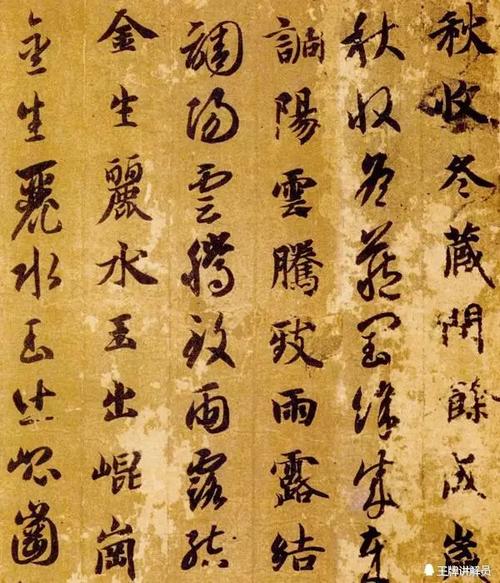 秋收冬藏閏餘成歲
秋收冬藏閏餘成歲
調陽雲騰致雨露結
調陽雲騰致雨露結
金生麗水玉出崐崗
金生麗水玉出崐崗
王牌讲解员